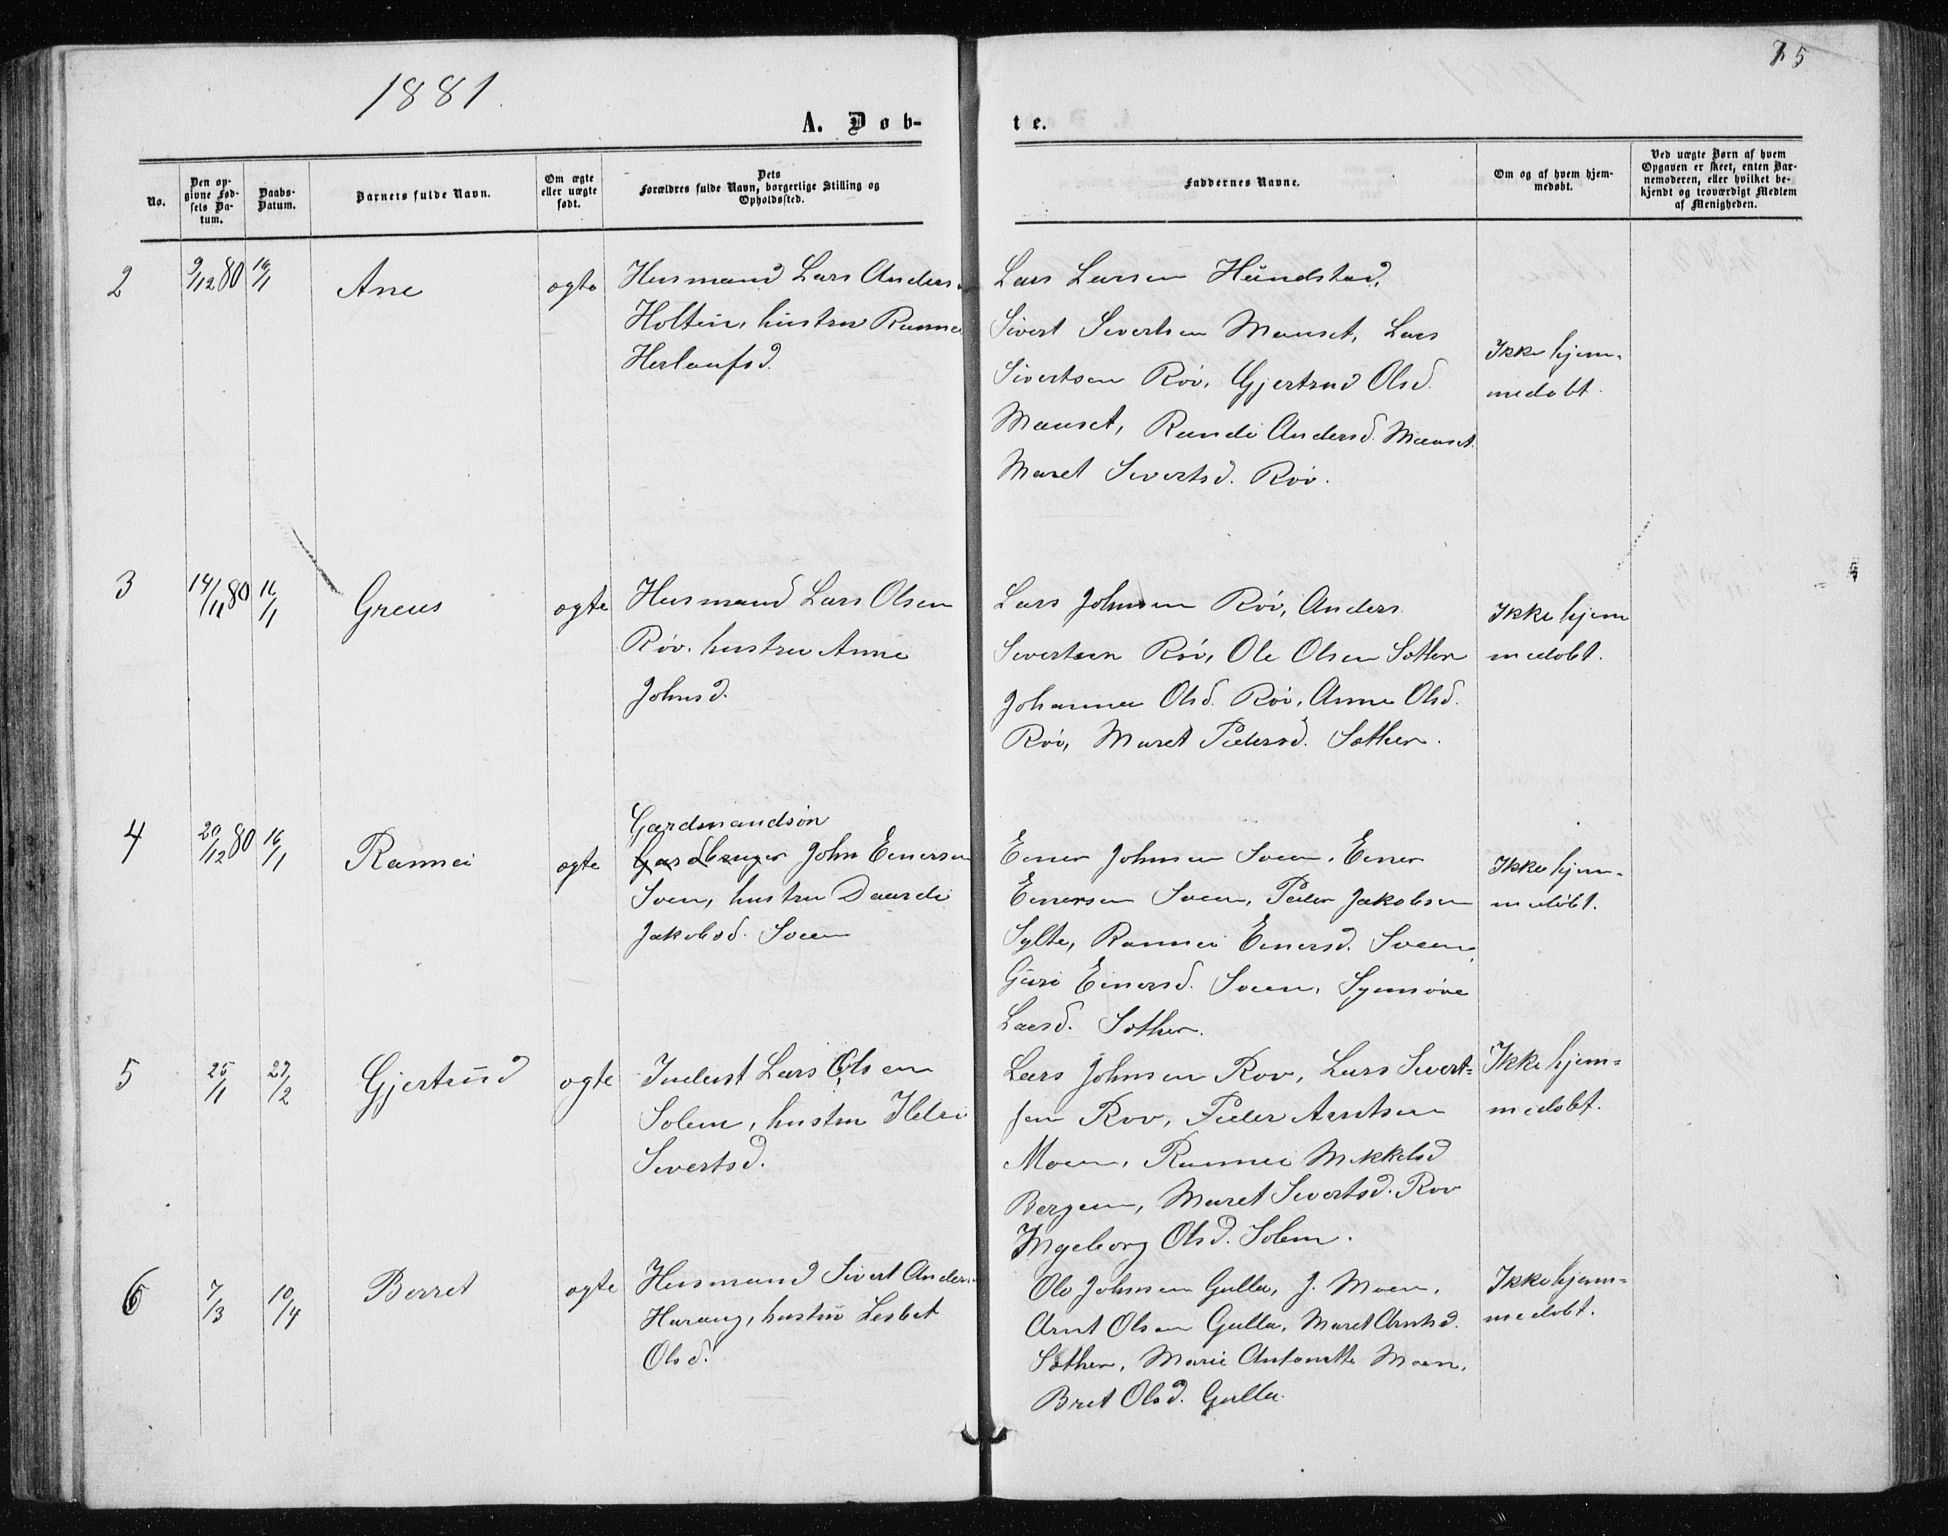 1881.
75
A. Døb-
te.
No.
Den op-
givne Fød-
sels Da-
tum.
Daabs-
Datum.
Barnets fulde Navn.
Om ægte
eller uægte
født.
Dets
Forældres fulde Navn, borgerlige Stilling og
Opholdssted.
Faddernes Navne.
Om og af hvem hjem-
medøbt.
Ved uægte Børn af hvem
Opgaven er skeet, enten Bar-
nemoderen, eller hvilket be-
kjendt og troværdigt Medlem
af Menigheden.
2
9/12 80
16/1
Ane
ægte
Husmand Lars Anders
Holten, hustru Rannei
Herlaufsd.
Lars Larsen Hundstad,
Sivert Sivertsen Mauset, Lars
Sivertsen Røv, Gjertrud Olsd.
Mauset, Randi Andersd. Mauset.
Maret Sivertsd. Røv.
Ikke hjem-
medøbt.
3
14/11 80
16/1
Greus
ægte
Husmand Lars Olsen
Røv. hustru Anne
Johnsd.
Lars Johnsen Røv, Anders
Sivertsen Røv, Ole Olsen Sæther
Johanna Olsd. Røv, Anne Olsd.
Røv, Maret Pedersd. Sæther.
Ikke hjem
medøbt.
4
20/12 80
16/1
Rannei
ægte
Gardmandsøn
Gardbruger John Einersen
Sven, hustru Daardi
Jakobsd. Sveen
Einer Johnsen Sveen, Einer
Einersen Sveen, Peder Jakobsen
Sylte, Rannei Einersd. Sveen,
Guri Einersd. Sveen, Synnøve
Larsd. Sæther.
Ikke hjem-
medøbt.
5
25/1
27/2
Gjertrud
ægte
Inderst Lars Olsen
Solem, hustru Ildri
Sivertsd.
Lars Johnsen Røv, Lars Sivert-
sen Røv, Peder Arntsen
Moen, Rannei Mikkelsd
Bergem, Maret Sivertsd. Røv
Ingeborg Olsd. Solem.
Ikke hjem-
medøbt.
6
7/3
10/4
Berret
ægte
Husmand Sivert Anders
Harang, hustru Lesbet
Olsd.
Ole Johnsen Gulla, J. Moen,
Arnt Olsen Gulla, Maret Arntsd.
Sæther, Marie Antonette Moen,
Bret Olsd. Gulla.
Ikke hjem-
medøbt.